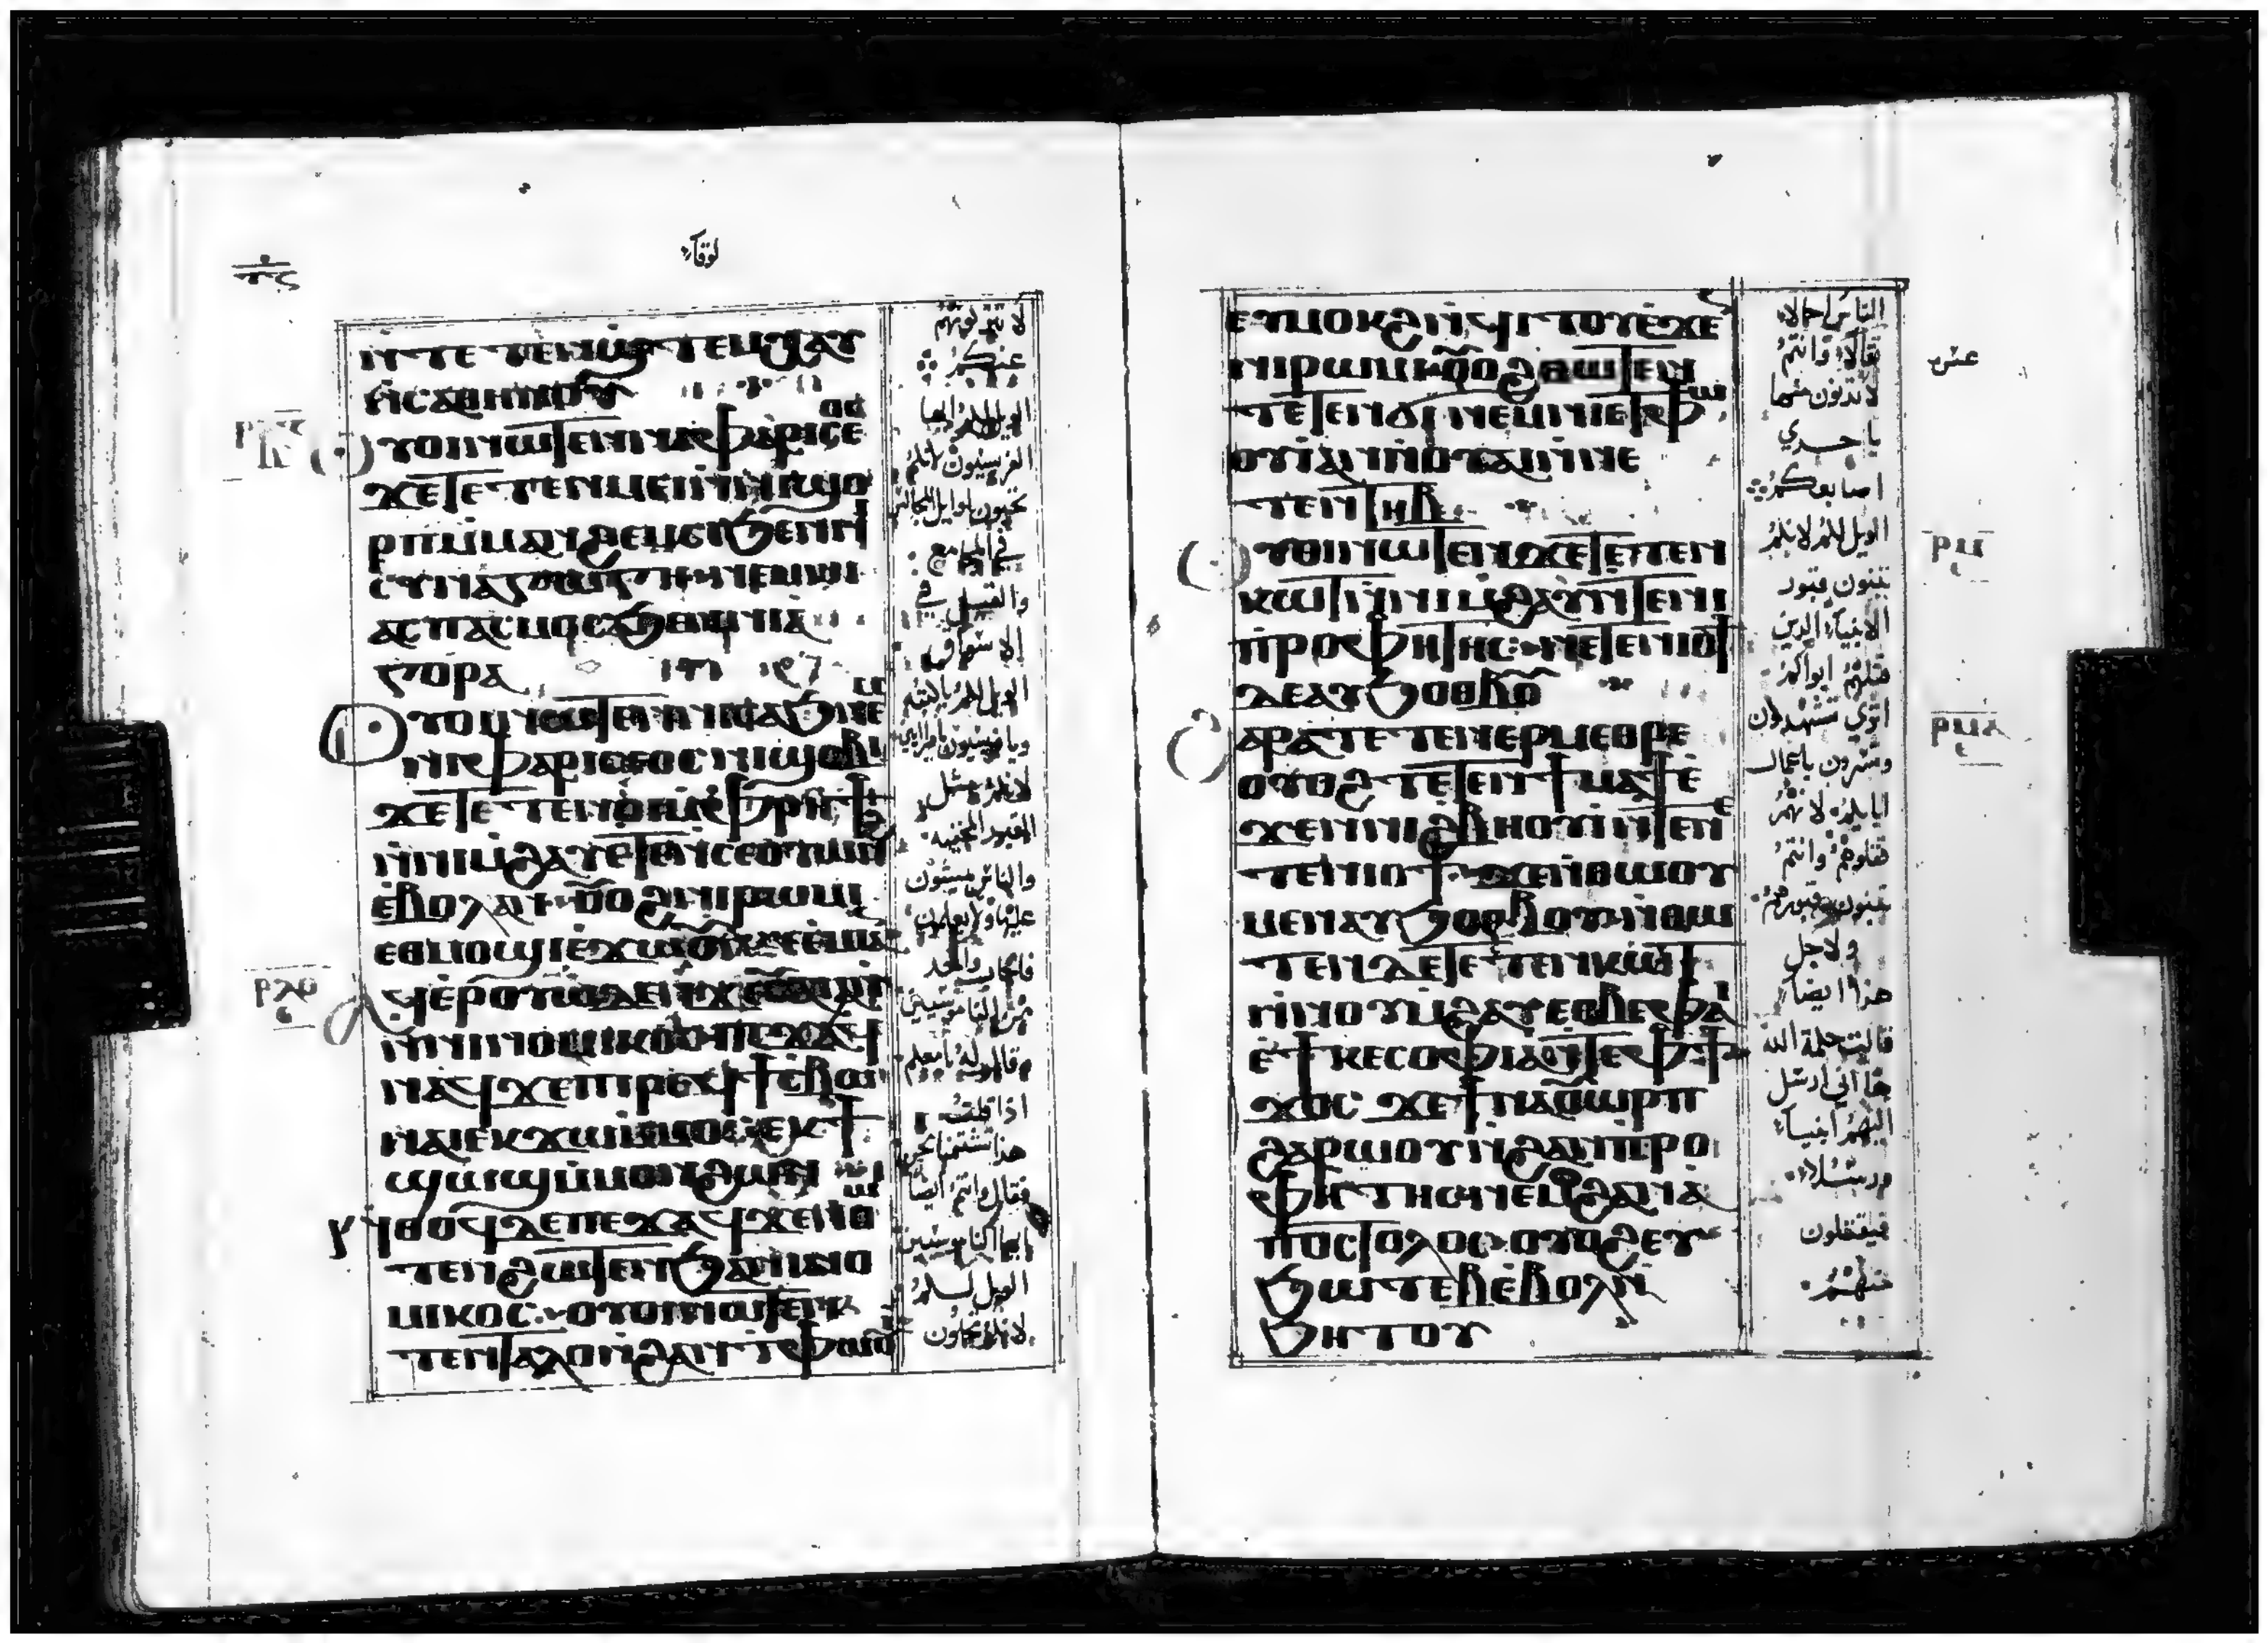 لوقا
ⲛ̀ⲧⲉⲧⲉⲛϣⲧⲉⲙⲭⲁⲩ
ⲛ̀ⲥⲁⲑⲏⲛⲟⲩ
ⲩⲟⲓⲛⲱⲧⲉⲛⲛⲓⲫⲁⲣⲓⲥⲉⲟⲥ
ϫⲉⲧⲉⲧⲉⲛⲙⲉⲓⲛ̀ⲛⲓϣⲟ
ⲣⲡⲙ̀ⲙⲁⲛϩⲉⲙⲥⲓϧⲉⲛⲛⲓ
ⲥⲩⲛⲁⲅⲱⲅⲏⲛⲉⲙⲛⲓ
ⲁⲥⲡⲁⲥⲙⲟⲥϧⲉⲛⲛⲓⲁ̀
ⲅⲟⲣⲁ
ⲟⲩⲟⲓⲛⲱⲧⲉⲛⲛⲓⲥⲁϧⲛⲉⲙ
ⲛⲓⲫⲁⲣⲓⲥⲉⲟⲥⲛⲓϣⲟⲃⲓ
ϫⲉⲧⲉⲧⲉⲛⲟ̀ⲛⲓⲙ̀ⲫⲣⲏϯ
ⲛ̀ⲛⲓⲙ̀ϩⲁⲩⲉⲧⲉⲛⲥⲉⲟⲩⲱⲛϩ
ⲉ̀ⲃⲟⲗⲁⲛⲟⲩⲟϩⲛⲓⲣⲱⲙⲓ
ⲉⲑⲙⲟϣⲓⲉ̀ϫⲱⲟⲩⲥⲉⲉⲙⲓ
ⲛ̀ⲛⲓⲛⲟⲙⲓⲕⲟⲥⲡⲉϫⲁϥ
ⲛⲁϥϫⲉⲡⲣⲉϥϯⲥⲃⲱ
ⲛⲁⲓⲉⲕϫⲱⲙ̀ⲙⲱⲟⲩⲉⲕϯ
ϣⲱϣⲙ̀ⲙⲟⲛϩⲱⲛ
ⲛ̀ⲑⲟϥⲇⲉⲡⲉϫⲁϥϫⲉⲛⲑⲱ
ⲧⲉⲛϩⲱⲧⲉⲛϧⲁⲛⲓⲛⲟ
ⲙⲓⲕⲟⲥⲟⲩⲟⲓⲛⲱⲧⲉⲛϫⲉ
ⲧⲉⲛⲧⲁⲗⲟⲛ̀ϩⲁⲛⲉⲧⲫⲱⲟⲩ
لا تتركونهم
عنكم
الويل لكم ايها
الفريسيون لانكم
تحبون اوايل المجالس
في المجامع
والقبل في
الاسواق
الويل لكم يا كتبة
لانكم مثل
القبور المخفية
والناس يمشون
عليها ولا يعلمون
فاجاب واحد
من الناموسيين
وقال له يا معلم
اذا قلت
هذا تشتمنا نحن
فقال وانتم ايضا
ايها الناموسيين
الويل لكم
لانكم تحملون
ⲉⲩⲙⲟⲕϩⲛ̀ϥⲓⲧⲟⲩⲉ̀ϫⲉ
ⲛⲓⲣⲱⲙⲓⲟⲩⲟϩⲛⲑⲱⲧⲉⲛ
ⲧⲉⲧⲉⲛϭⲓⲛⲉⲙⲛⲓⲉⲧⲫⲱ
ⲟⲩⲓ̀ⲁⲛⲛ̀ⲟⲩⲁⲓⲛ̀ⲛⲉ
ⲧⲉⲛⲧⲏⲃ
ⲟⲩⲟⲓⲛⲱⲧⲉⲛϫⲉⲧⲉⲧⲉⲛ
ⲕⲱⲧⲛ̀ⲛⲓⲙ̀ϩⲁⲩⲛⲧⲉⲛⲓ
ⲡⲣⲟⲫⲏⲧⲏⲥⲛⲉⲧⲉⲛⲓⲟϯ
ⲇⲉⲁⲩϧⲟⲑⲃⲟⲩ
ⲁⲣⲁⲧⲉⲧⲉⲛⲉⲣⲙⲉⲑⲣⲉ
ⲟⲩⲟϩⲧⲉⲧⲉⲛϯⲙⲁϯⲉ̀
ϫⲉⲛⲛⲓϩⲃⲏⲟⲩⲓⲛ̀ⲧⲉⲛⲉ
ⲧⲉⲛⲓⲟϯϫⲉⲛ̀ⲑⲱⲟⲩ
ⲙⲉⲛⲁⲩϧⲟⲑⲃⲟⲩⲛ̀ⲑⲱ
ⲧⲉⲛⲇⲉⲧⲉⲧⲉⲛⲕⲱⲧ
ⲛ̀ⲛⲟⲩⲙ̀ϩⲁⲩⲉⲑⲃⲉⲫⲁⲓ
ⲉ̀ϯⲕⲉⲥⲟⲫⲓⲁⲛ̀ⲧⲉⲫϯ
ϫⲟⲥϫⲉϯⲛⲁⲟⲩⲱⲣⲡ
ϩⲁⲣⲱⲟⲩⲛ̀ϩⲁⲛⲡⲣⲟ
ⲫⲏⲧⲏⲥⲛⲉⲙϩⲁⲛⲁ̀
ⲡⲟⲥⲧⲟⲗⲟⲥⲟⲩⲟϩⲉⲩ
ϧⲱⲧⲉⲃⲉ̀ⲃⲟⲗⲛ̀
ϧⲏⲧⲟⲩ
الناس احمالا
ثقالا وانتم
لا تدنون منها
باحدي
اصابعكم
الويل لكم لانكم
تبنون قبور
الانبياء الذين
قتلهم اباوكم
اتري تشهدون
وتسرون باعمال
ابايكم لانهم
قتلوهم وانتم
تبنون قبورهم
ولاجل
هذا ايضا
قالت حكمة الله
ها اني ارسل
اليهم انبياء
ورسلا
فيقتلون
منهم
ⲣⲙ
ⲣⲙⲁ